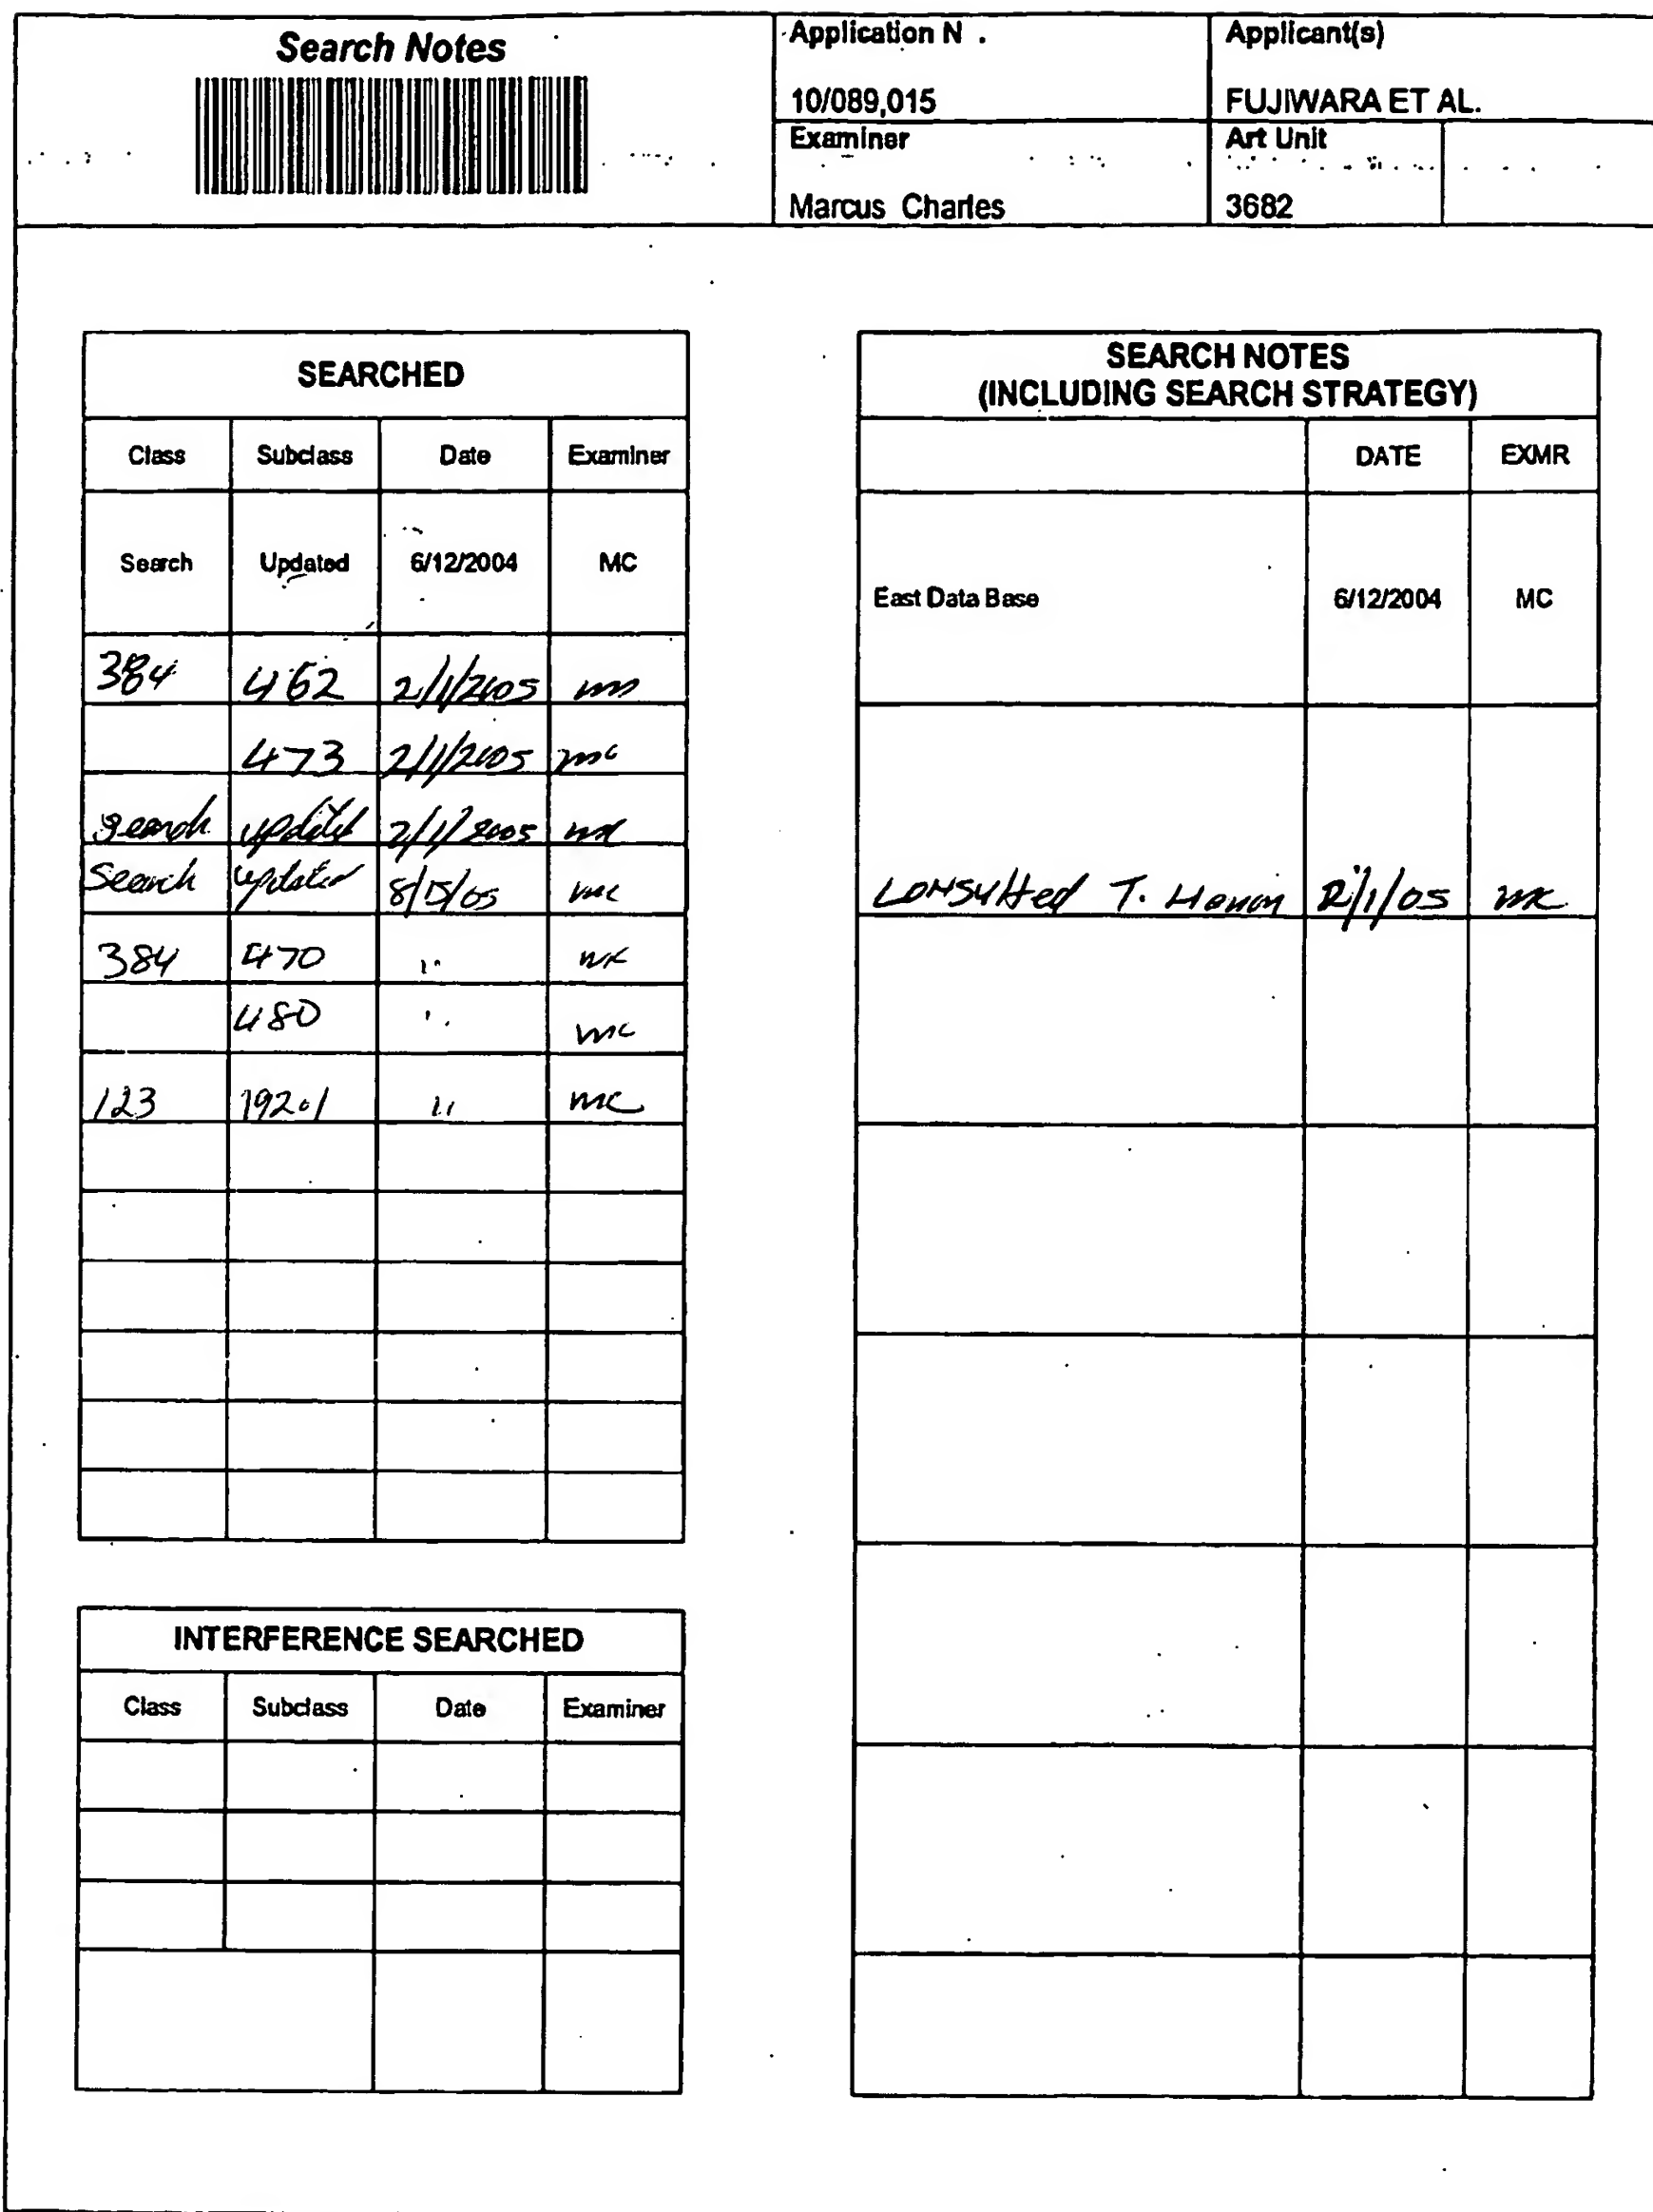 Search Notes
Application N .
10/089,015
Applicant(s)
FUJIWARA ET AL.
Examiner
Marcus Charles
Art Unit
3682
SEARCHED
Class Subclass Date Examiner
Search Updated 6/12/2004 MC
384 462 2/1/2005 mc
473 2/1/2005 mc
search updated 2/1/2005 mc
Search updated 8/15/05 mc
384 470 " mc
480 " mc
123 192.1 " mc
INTERFERENCE SEARCHED
Class Subclass Date Examiner
SEARCH NOTES
(INCLUDING SEARCH STRATEGY)
DATE EXMR
East Data Base 6/12/2004 MC
Consulted T. 2/1/05 mc